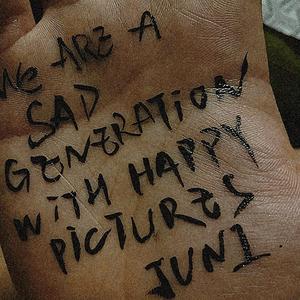 WE ARE A
SAD
GENERATION
WITH HAPPY
PICTURES
JUNI